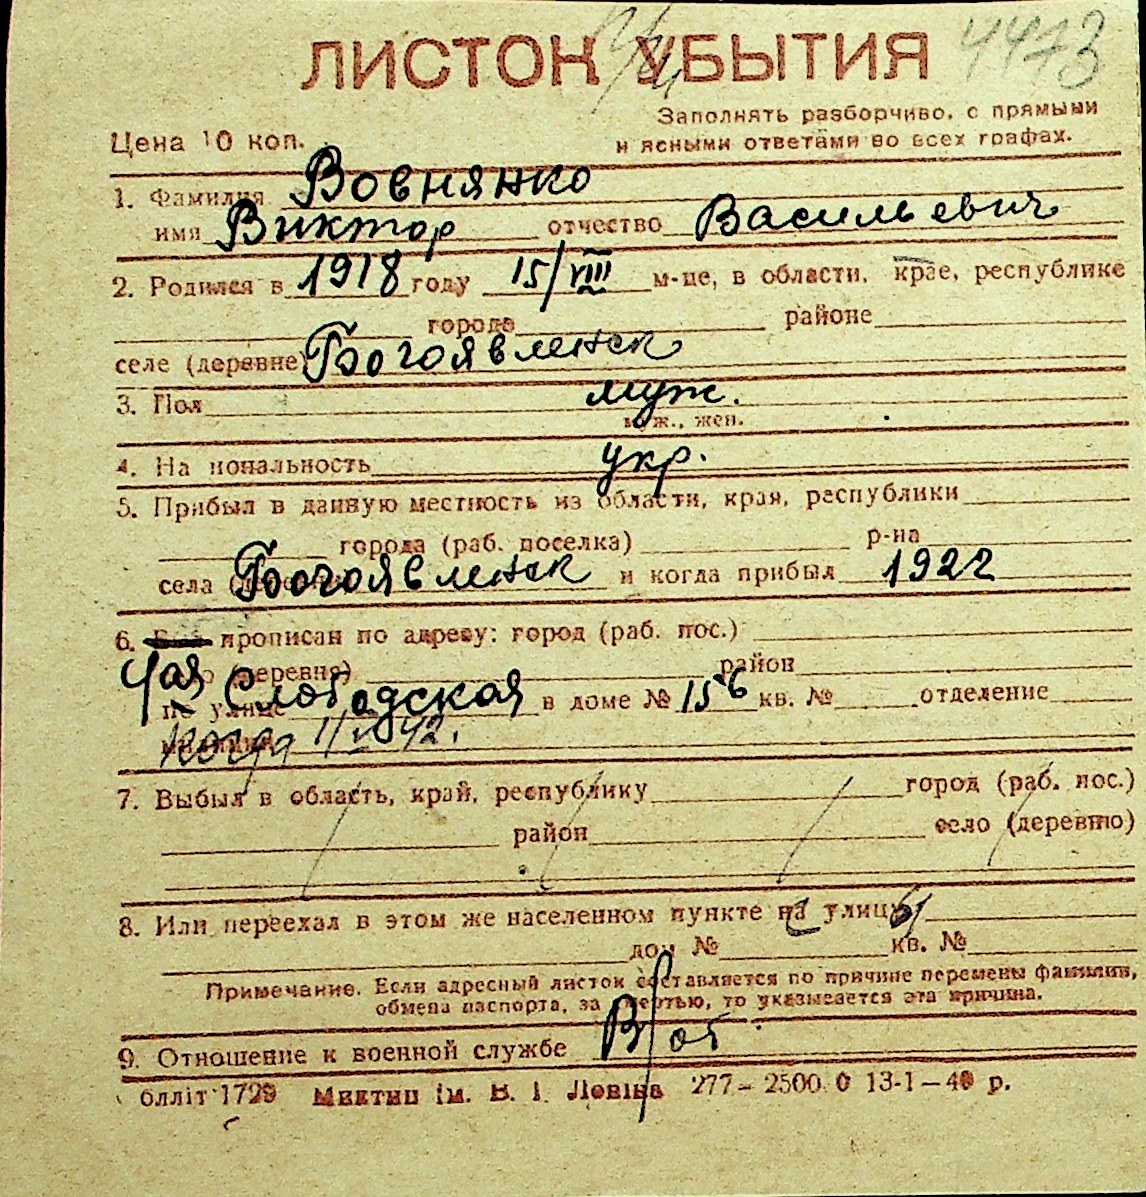 4473
ЛИСТОК УБЫТИЯ
Заполнять разборчиво, с прямыми
и ясными ответами во всех графах.
Цена 10 коп.
1. Фамилия Вовнянко
имя Виктор отчество Васильевич
2. Родился в 1918 году 15/VIII м-це, в области, крае, республике
города районе
селе (деревне) Богоявленск
3. Пол муж.
муж., жен.
4. Национальность укр.
5. Прибыл в данную местность из области, края, республики
города (раб. поселка) р-на
села Богоявленск и когда прибыл 1922
6. прописан по адресу: город (раб. пос.)
(деревня) район
4ая Слободская
по улице в доме № 156 кв. № отделение
когда 1/V 42.
7. Выбыл в область, край, республику город (раб. пос.)
район село (деревню)
8. Или переехал в этом же населенном пункте на улицу
дом № кв. №
Примечание. Если адресный листок составляется по причине перемены фамилии,
обмена паспорта, за смертью, то указывается эта причина.
9. Отношение к военной службе В/об
облліт 1729 ім. В. І. Леніна 277–2500 13-1–40 р.